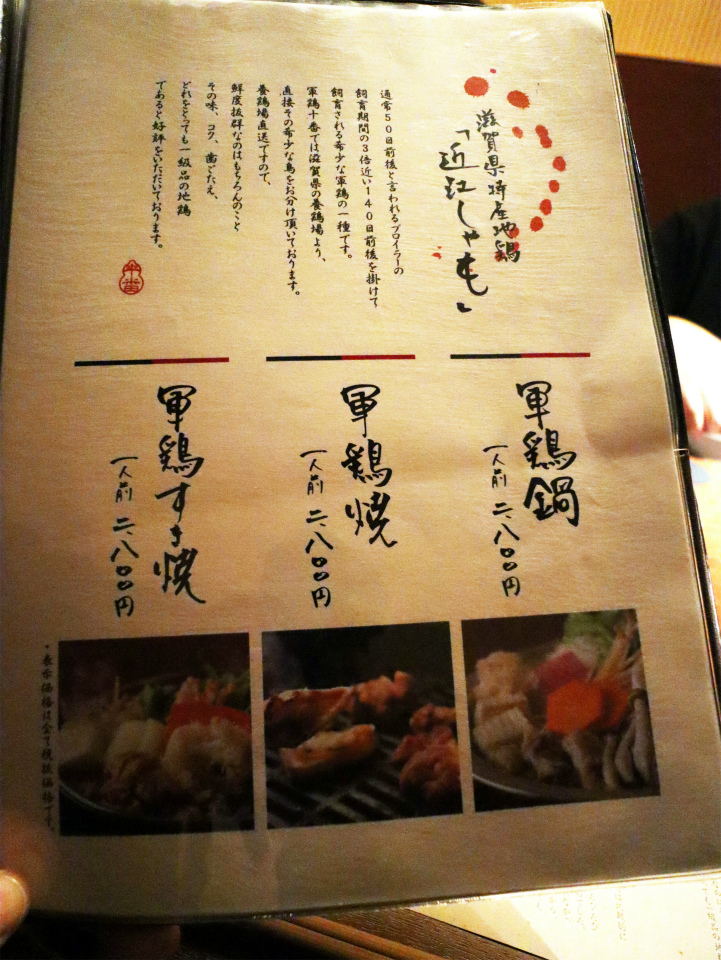 滋賀県特産地鶏
「近江しゃも」
通常50日前後と言われるブロイラーの
飼育期間の3倍近い140日前後を掛けて
飼育される希少な軍鶏の一種です。
軍鶏十番では滋賀県の養鶏場より、
直接その希少な鳥をお分け頂いております。
養鶏場直送ですので、
鮮度抜群なのはもちろんのこと
その味、コク、歯ごたえ、
どれをとっても一級品の地鶏
であると好評をいただいております。
十番
軍鶏鍋
一人前 二、八〇〇円
軍鶏焼
一人前 二、八〇〇円
軍鶏すき焼
一人前 二、八〇〇円
・表示価格は全て税抜価格です。